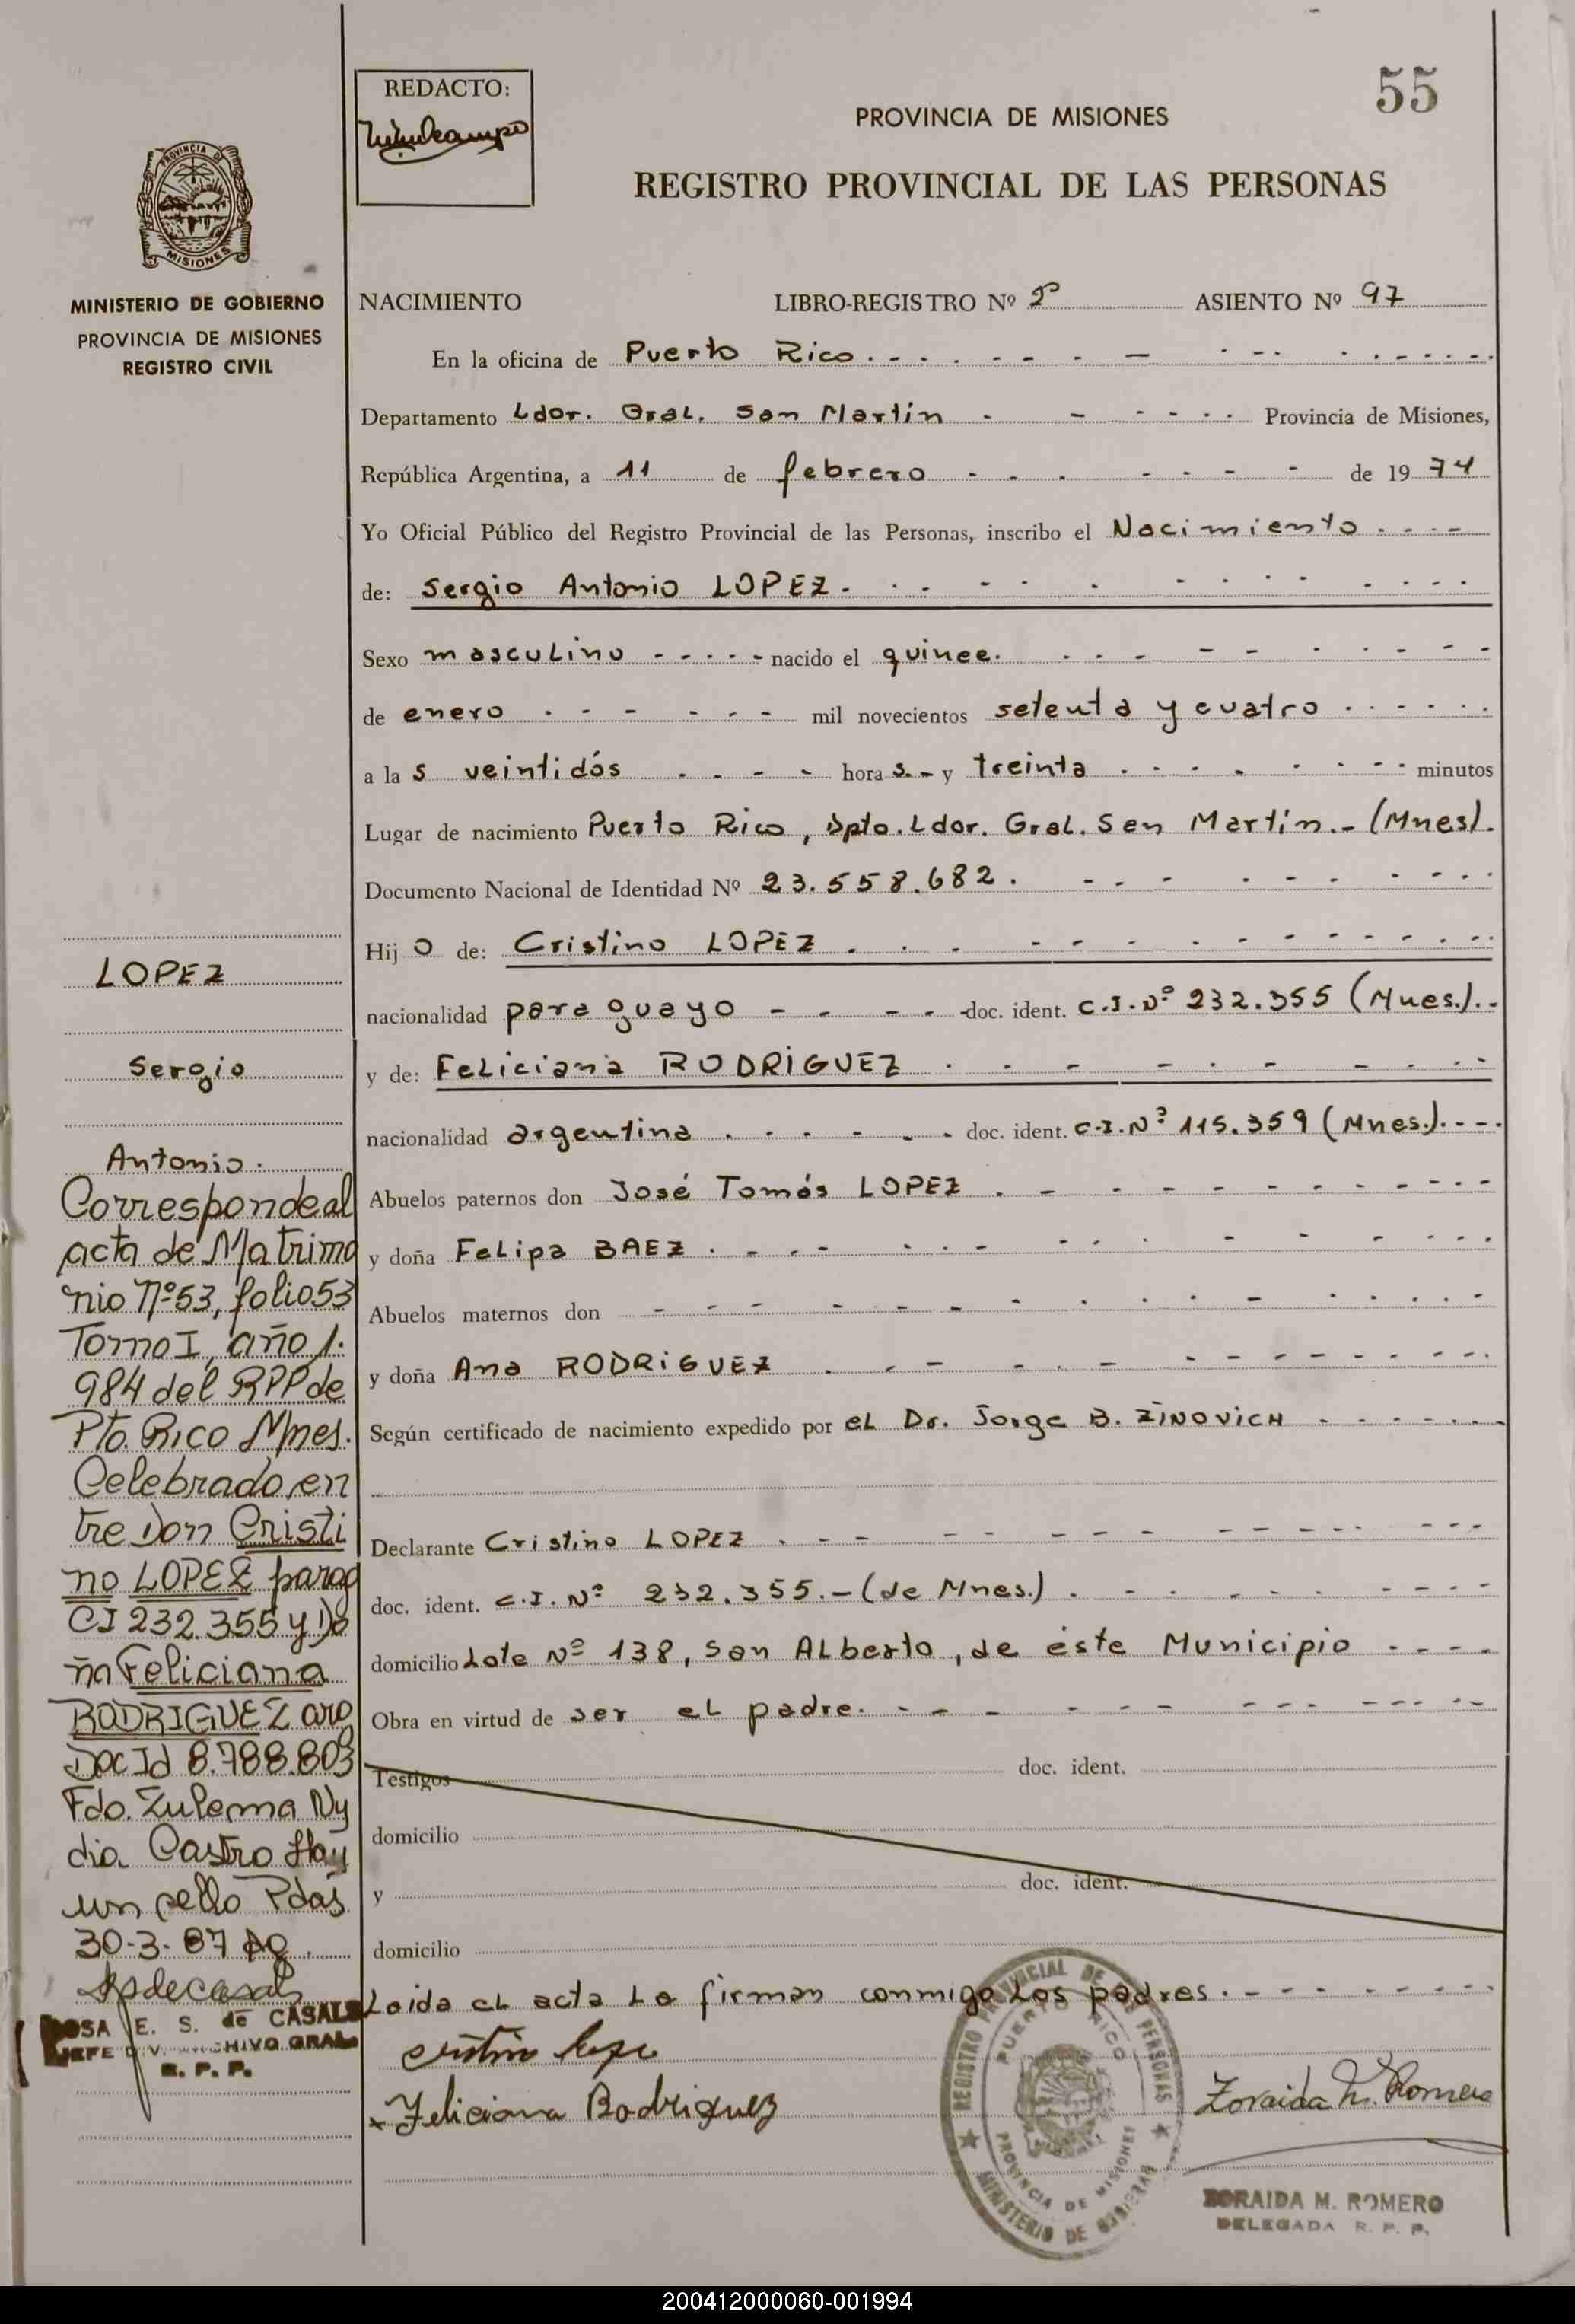 55
REDACTO:
PROVINCIA DE MISIONES
REGISTRO PROVINCIAL DE LAS PERSONAS
PROVINCIA DE
MISIONES
MINISTERIO DE GOBIERNO
PROVINCIA DE MISIONES
REGISTRO CIVIL
NACIMIENTO LIBRO-REGISTRO Nº ASIENTO Nº 97
En la oficina de Puerto Rico.
Departamento Ldor. Gral. San Martín - Provincia de Misiones,
República Argentina, a 11 de febrero de 1974
Yo Oficial Público del Registro Provincial de las Personas, inscribo el Nacimiento
de: Sergio Antonio LOPEZ.
Sexo masculino nacido el quince.
de enero mil novecientos setenta y cuatro
a las veintidós horas.- y treinta minutos
Lugar de nacimiento Puerto Rico, Dpto. Ldor. Gral. San Martín.- (Mnes).
Documento Nacional de Identidad Nº 23.558.682.
Hijo de: Cristino LOPEZ.
nacionalidad paraguayo doc. ident. C.I.Nº 232.355 (Mnes.).-
y de: Feliciana RODRIGUEZ
nacionalidad argentina doc. ident. C.I.Nº 115.359 (Mnes.).
Abuelos paternos don José Tomás LOPEZ.
y doña Felipa BAEZ.
Abuelos maternos don
y doña Ana RODRIGUEZ
Según certificado de nacimiento expedido por el Dr. Jorge B. ZINOVICH
Declarante Cristino LOPEZ.
doc. ident. C.I. Nº 232.355.- (de Mnes.)
domicilio Lote Nº 138, San Alberto, de éste Municipio
Obra en virtud de ser el padre.
Testigos doc. ident.
domicilio
y doc. ident.
domicilio
Leída el acta la firman conmigo los padres.
Cristino Lopez
x Feliciana Rodriguez
Zoraida M. Romero
REGISTRO PROVINCIAL DE LAS PERSONAS
PUERTO RICO
PROVINCIA DE MISIONES
MINISTERIO DE GOBIERNO
ZORAIDA M. ROMERO
DELEGADA R. P. P.
LOPEZ
Sergio
Antonio.
Corresponde al
acta de Matrimo
nio Nº53, folio 53
Tomo I, año 1.
984 del RPP de
Pto. Rico Mnes.
Celebrado en
tre Don Cristi
no LOPEZ parag
CI 232.355 y Do
ña Feliciana
RODRIGUEZ arg
Doc Id 8.788.803
Fdo. Zulema Ny
dia Castro Hay
un sello Pdas
30-3-87
ROSA E. S. de CASALS
JEFE DIV. ARCHIVO GRAL
R. P. P.
200412000060-001994